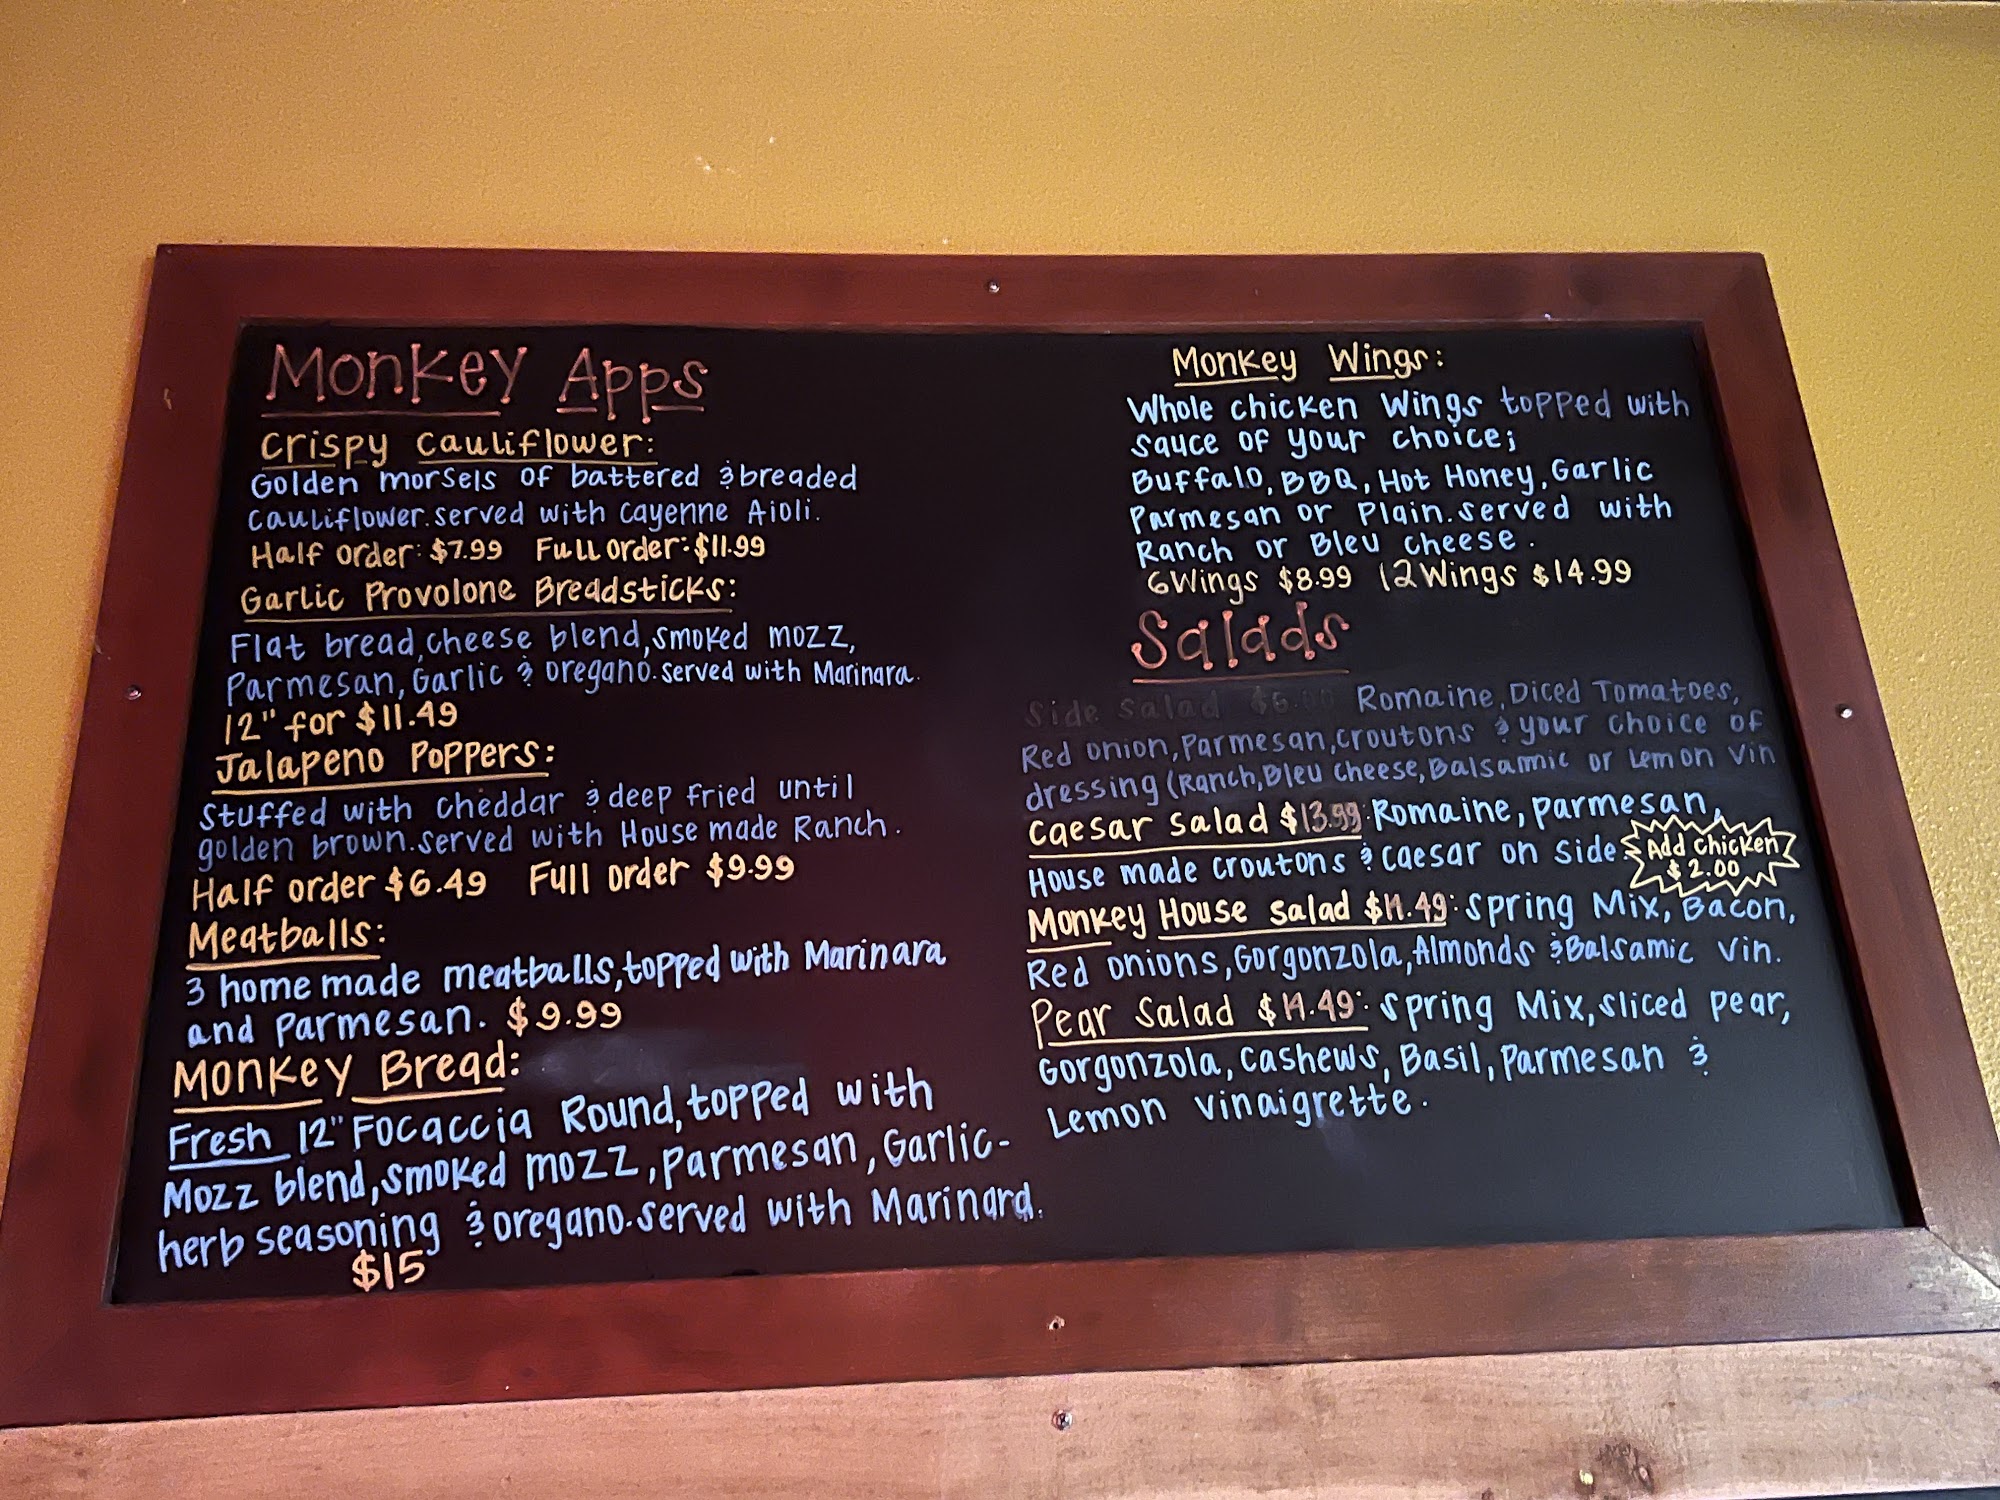 Monkey Apps
Crispy Cauliflower:
Golden morsels of battered & breaded
cauliflower. served with Cayenne Aioli.
Half order: $7.99 Full order: $11.99
Garlic Provolone Breadsticks:
Flat bread, cheese blend, smoked mozz,
Parmesan, Garlic & oregano. served with Marinara.
12" for $11.49
Jalapeno Poppers:
Stuffed with cheddar & deep fried until
golden brown. served with House made Ranch.
Half order $6.49 Full order $9.99
Meatballs:
3 home made meatballs, topped with Marinara
and parmesan. $9.99
Monkey Bread:
Fresh 12" Focaccia Round, topped with
Mozz blend, smoked mozz, parmesan, Garlic-
herb seasoning & oregano. served with Marinara.
$15
Monkey Wings:
Whole chicken wings topped with
sauce of your choice;
Buffalo, BBQ, Hot Honey, Garlic
Parmesan or Plain. served with
Ranch or Bleu cheese.
6 Wings $8.99 12 Wings $14.99
Salads
Side Salad $6.00 Romaine, Diced Tomatoes,
Red onion, Parmesan, croutons & your choice of
dressing (Ranch, Bleu cheese, Balsamic or Lemon Vin
Caesar salad $13.99: Romaine, parmesan,
House made croutons & caesar on side
Add chicken
$2.00
Monkey House salad $14.49: Spring Mix, Bacon,
Red onions, Gorgonzola, Almonds & Balsamic Vin.
Pear Salad $14.49: Spring Mix, sliced pear,
Gorgonzola, cashews, Basil, parmesan &
Lemon vinaigrette.